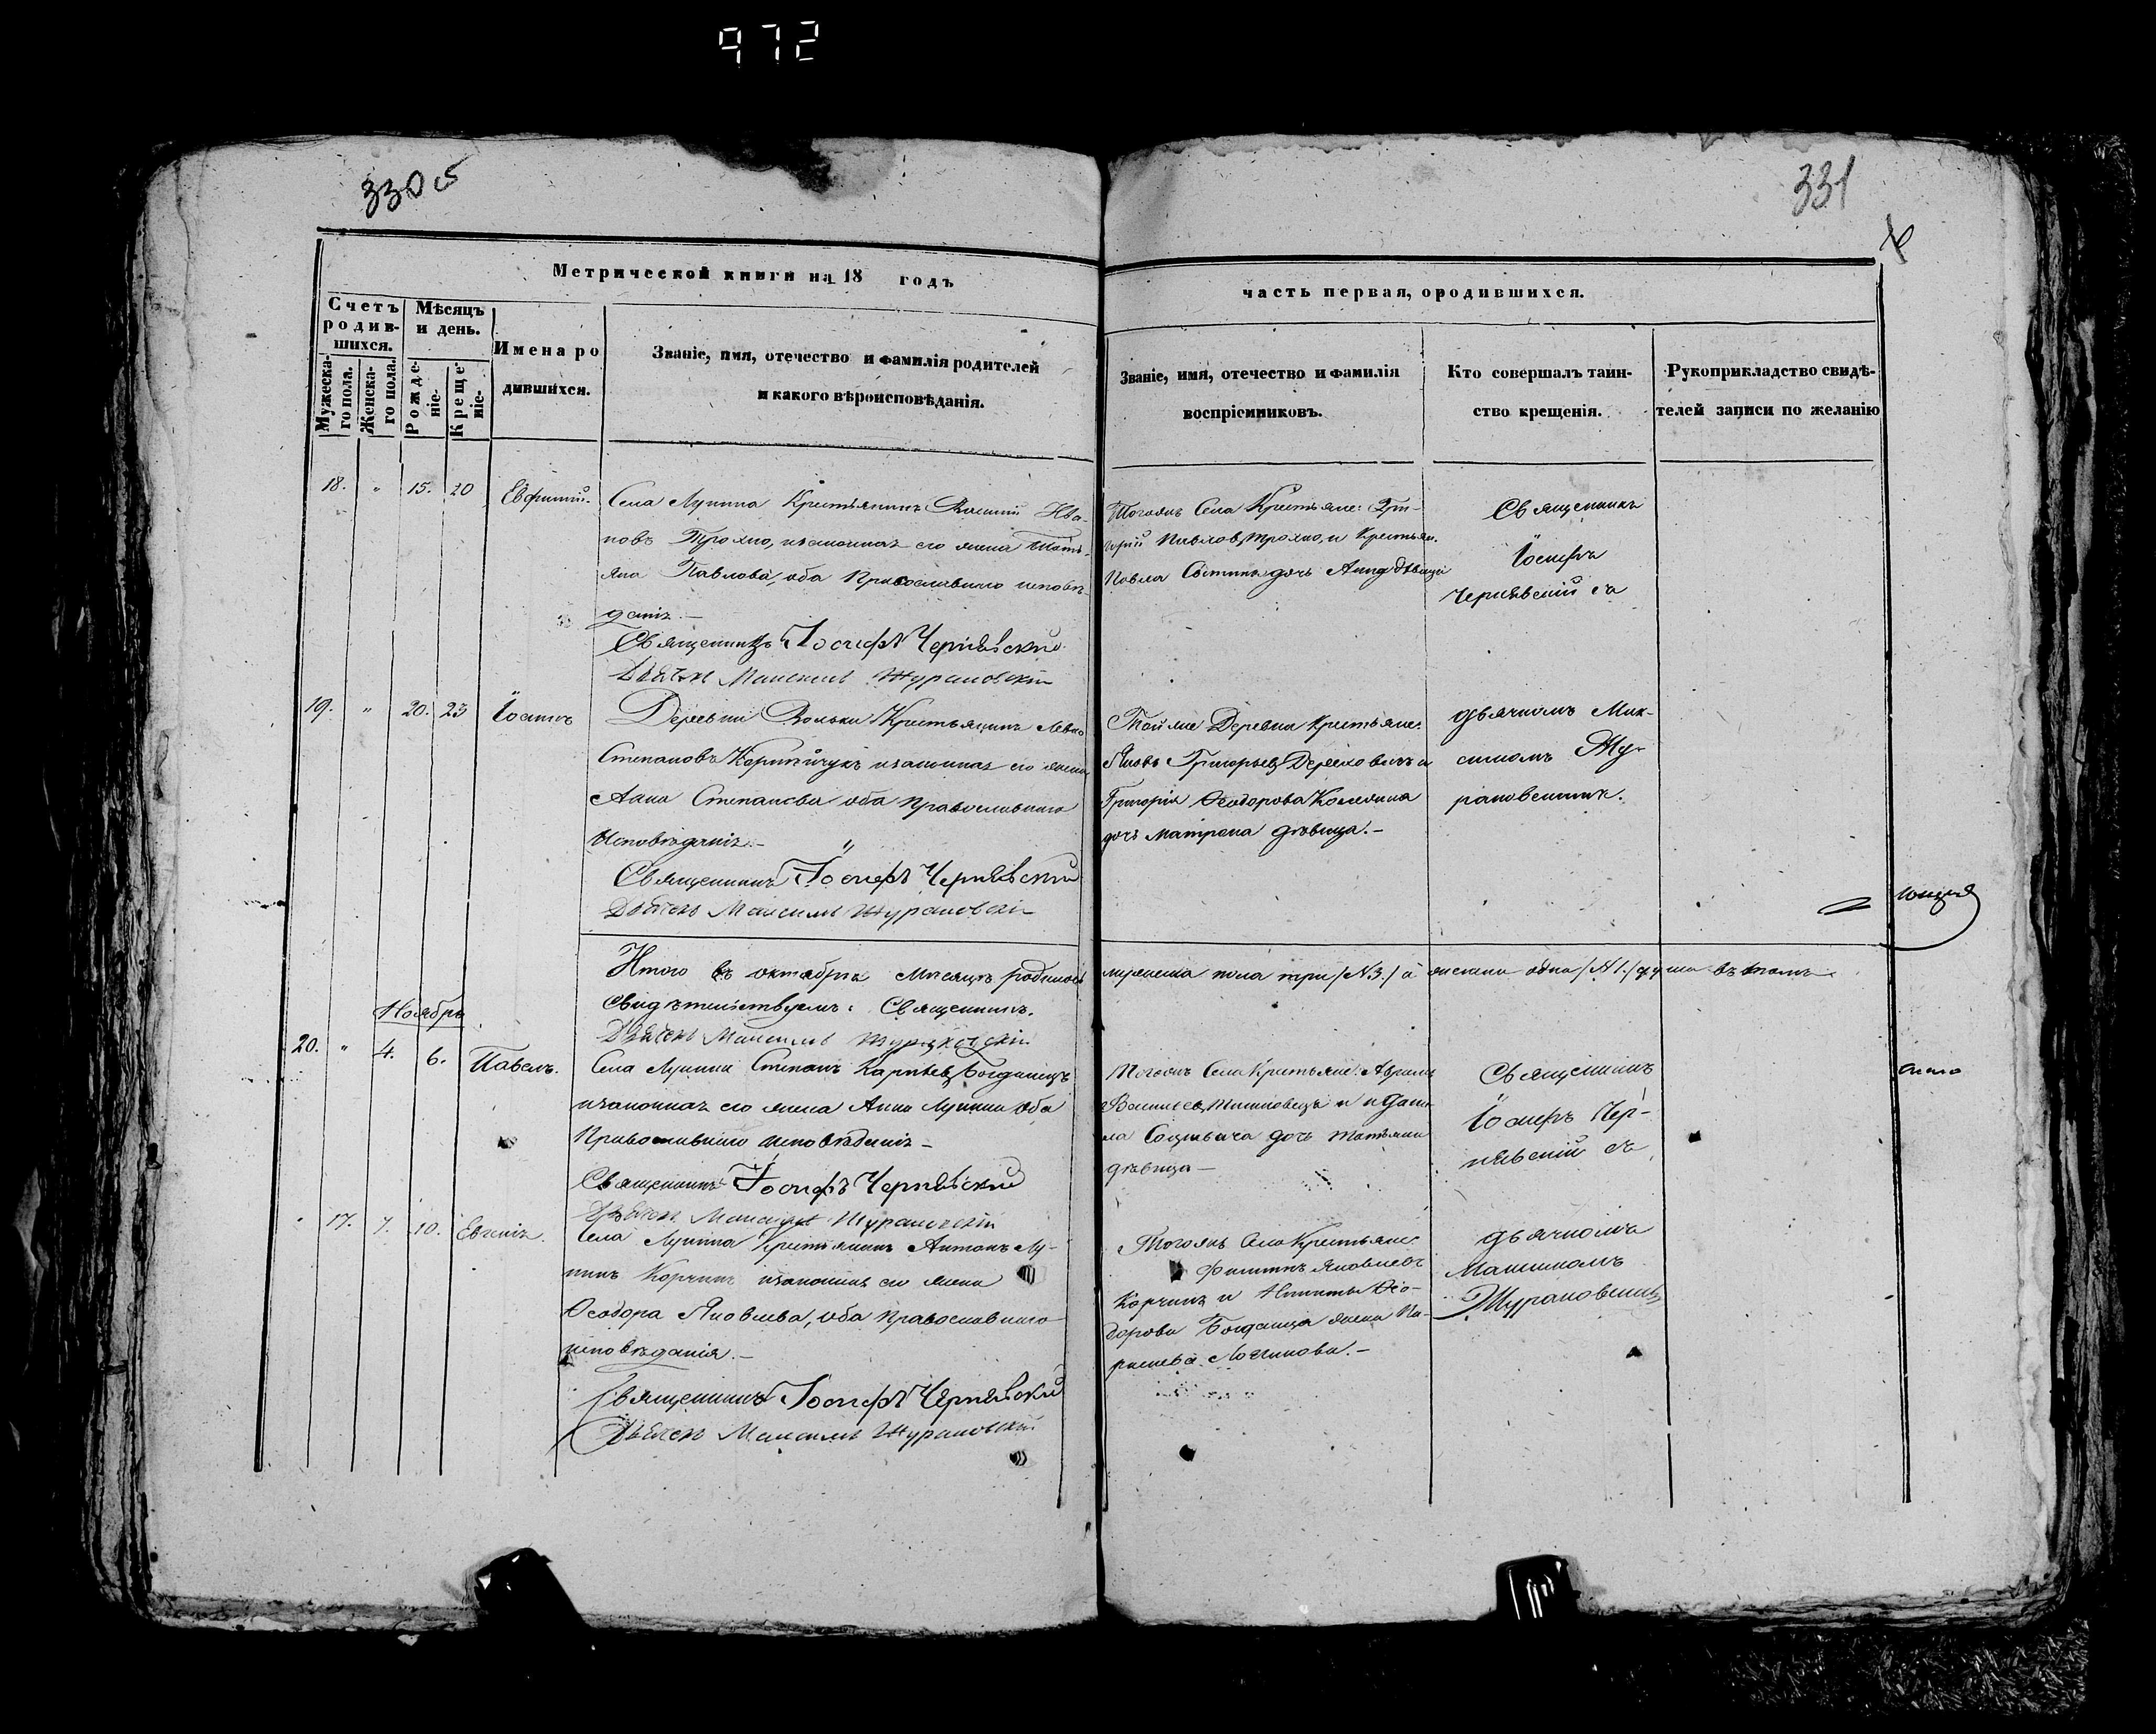 972
330 об
331
Метрической книги на 18 годъ
часть первая, о родившихся.
Счетъ родив-
шихся.
Мѣсяцъ
и день.
Мужеска-
го пола.
Женска-
го пола.
Рожде-
ніе.
Креще-
ніе.
Имена ро
дившихся.
Званіе, имя, отечество и фамилія родителей
и какого вѣроисповѣданія.
Званіе, имя, отечество и фамилія
воспріемниковъ.
Кто совершалъ таин-
ство крещенія.
Рукоприкладство свидѣ-
телей записи по желанію
18. " 15. 20 Евфимій.
Села Лунина Крестьянинъ Василій Ива-
новъ Трохно, изаконная его жена Тать-
яна Павлова, оба Православнаго исповѣ
данія.—
Священникъ Іосифъ Чернявскій
Дьячекъ Максимъ Журановскій
Тогожъ Села Крестьяне: Гри-
горій Павловъ Трохно, и Крестьян.
Павла дочь Анна дѣвица
Священникъ
Іосифъ
Чернявскій съ
19. " 20. 23 Іоаннъ
Деревни Вольки Крестьянинъ Левко
Степановъ изаконная его жена
Анна Степанова оба Православнаго
Исповѣданія.—
Священникъ Іосифъ Чернявскій
Дьячекъ Максимъ Журановскій
Тойже Деревни Крестьяне:
Яковъ Григорьевъ и
Григорія Ѳеодорова
дочь Матрона дѣвица.—
дьячкомъ Мак-
симомъ Жу-
рановскимъ.
Итого въ октябрѣ мѣсяцѣ родилось мужеска пола три /№3./ а женска одна /№1./ душа въ томъ
Свидѣтельствуемъ: Священникъ.
Дьячекъ Максимъ Журановскій
Ноябрь
20. " 4. 6. Павелъ.
Села Лунина Степанъ Карпѣевъ Богданецъ
изаконная его жена Анна оба
Православнаго исповѣданія—
Священникъ Іосифъ Чернявскій
Дьячекъ Максимъ Журановскій
Тогожъ Села Крестьяне: Аврамъ
Васильевъ и Дани-
ла дочь Татьяна
дѣвица—
Священникъ
Іосифъ Чер-
нявскій съ
17. 7. 10. Евгенія.
Села Лунина Крестьянинъ Антонъ Лу-
кинъ Корчикъ изаконная его жена
Ѳеодора Яковлева, оба Православнаго
исповѣданія.—
Священникъ Іосифъ Чернявскій
Дьячекъ Максимъ Журановскій
Тогожъ Села Крестьяне
Филиппъ Яковлевъ
Корчикъ и Никиты Ѳео-
дорова Богданца жена Па-
раскева Логинова.—
дьячкомъ
Максимомъ
Журановскимъ